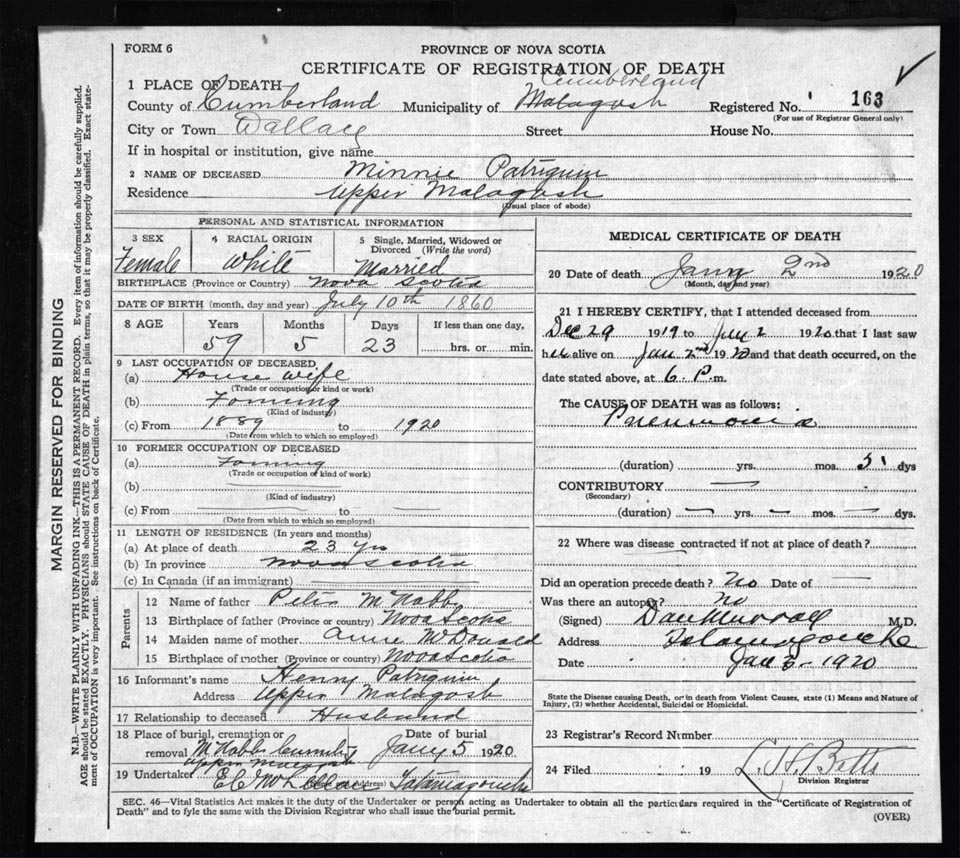 FORM 6
PROVINCE OF NOVA SCOTIA
CERTIFICATE OF REGISTRATION OF DEATH
1 PLACE OF DEATH
Cumberland
County of Cumberland Municipality of Malagash Registered No. 163
(For use of Registrar General only)
City or Town Wallace Street House No.
If in hospital or institution, give name
2 NAME OF DECEASED Minnie Patriquin
Residence Upper Malagash
(Usual place of abode)
PERSONAL AND STATISTICAL INFORMATION
3 SEX Female
4 RACIAL ORIGIN White
5 Single, Married, Widowed or Divorced (Write the word) Married
BIRTHPLACE (Province or Country) Nova Scotia
DATE OF BIRTH (month, day and year) July 10th 1860
8 AGE Years Months Days If less than one day,
59 5 23 hrs. or min.
9 LAST OCCUPATION OF DECEASED
(a) House wife
(Trade or occupation or kind or work)
(b)
(Kind of industry)
(c) From 1889 to 1920
(Date from which to which so employed)
10 FORMER OCCUPATION OF DECEASED
(a)
(Trade or occupation or kind of work)
(b)
(Kind of industry)
(c) From to
(Date from which to which so employed)
11 LENGTH OF RESIDENCE (In years and months)
(a) At place of death 23 yrs
(b) In province Nova Scotia
(c) In Canada (if an immigrant)
Parents
12 Name of father Peter McNabb
13 Birthplace of father (Province or country) Nova Scotia
14 Maiden name of mother Annie McDonald
15 Birthplace of mother (Province or country) Nova Scotia
16 Informant's name Henry Patriquin
Address Upper Malagash
17 Relationship to deceased Husband
18 Place of burial, cremation or Date of burial
removal McNabb Jany 5 1920
Upper Malagash
19 Undertaker (Address) Tatamagouche
MEDICAL CERTIFICATE OF DEATH
20 Date of death Jany 2nd 1920
(Month, day and year)
21 I HEREBY CERTIFY, that I attended deceased from
Dec 29 1919 to Jan 2 1920 that I last saw
her alive on Jan 2nd 1920 and that death occurred, on the
date stated above, at 6 P.m.
The CAUSE OF DEATH was as follows:
Pneumonia
(duration) yrs. mos. 5 dys
CONTRIBUTORY —
(Secondary)
(duration) — yrs. — mos. — dys.
22 Where was disease contracted if not at place of death?
Did an operation precede death? No Date of —
Was there an autopsy? No
(Signed) Dan Murray M.D.
Address Tatamagouche
Date Jan 3 - 1920
State the Disease causing Death, or in death from Violent Causes, state (1) Means and Nature of
Injury, (2) whether Accidental, Suicidal or Homicidal.
23 Registrar's Record Number
24 Filed 19 Betts
Division Registrar
SEC. 46—Vital Statistics Act makes it the duty of the Undertaker or person acting as Undertaker to obtain all the particulars required in the "Certificate of Registration of
Death" and to fyle the same with the Division Registrar who shall issue the burial permit.
(OVER)
MARGIN RESERVED FOR BINDING
N.B.—WRITE PLAINLY WITH UNFADING INK—THIS IS A PERMANENT RECORD. Every item of information should be carefully supplied.
AGE should be stated EXACTLY. PHYSICIANS should STATE CAUSE OF DEATH in plain terms, so that it may be properly classified. Exact state-
ment of OCCUPATION is very important. See instructions on back of Certificate.